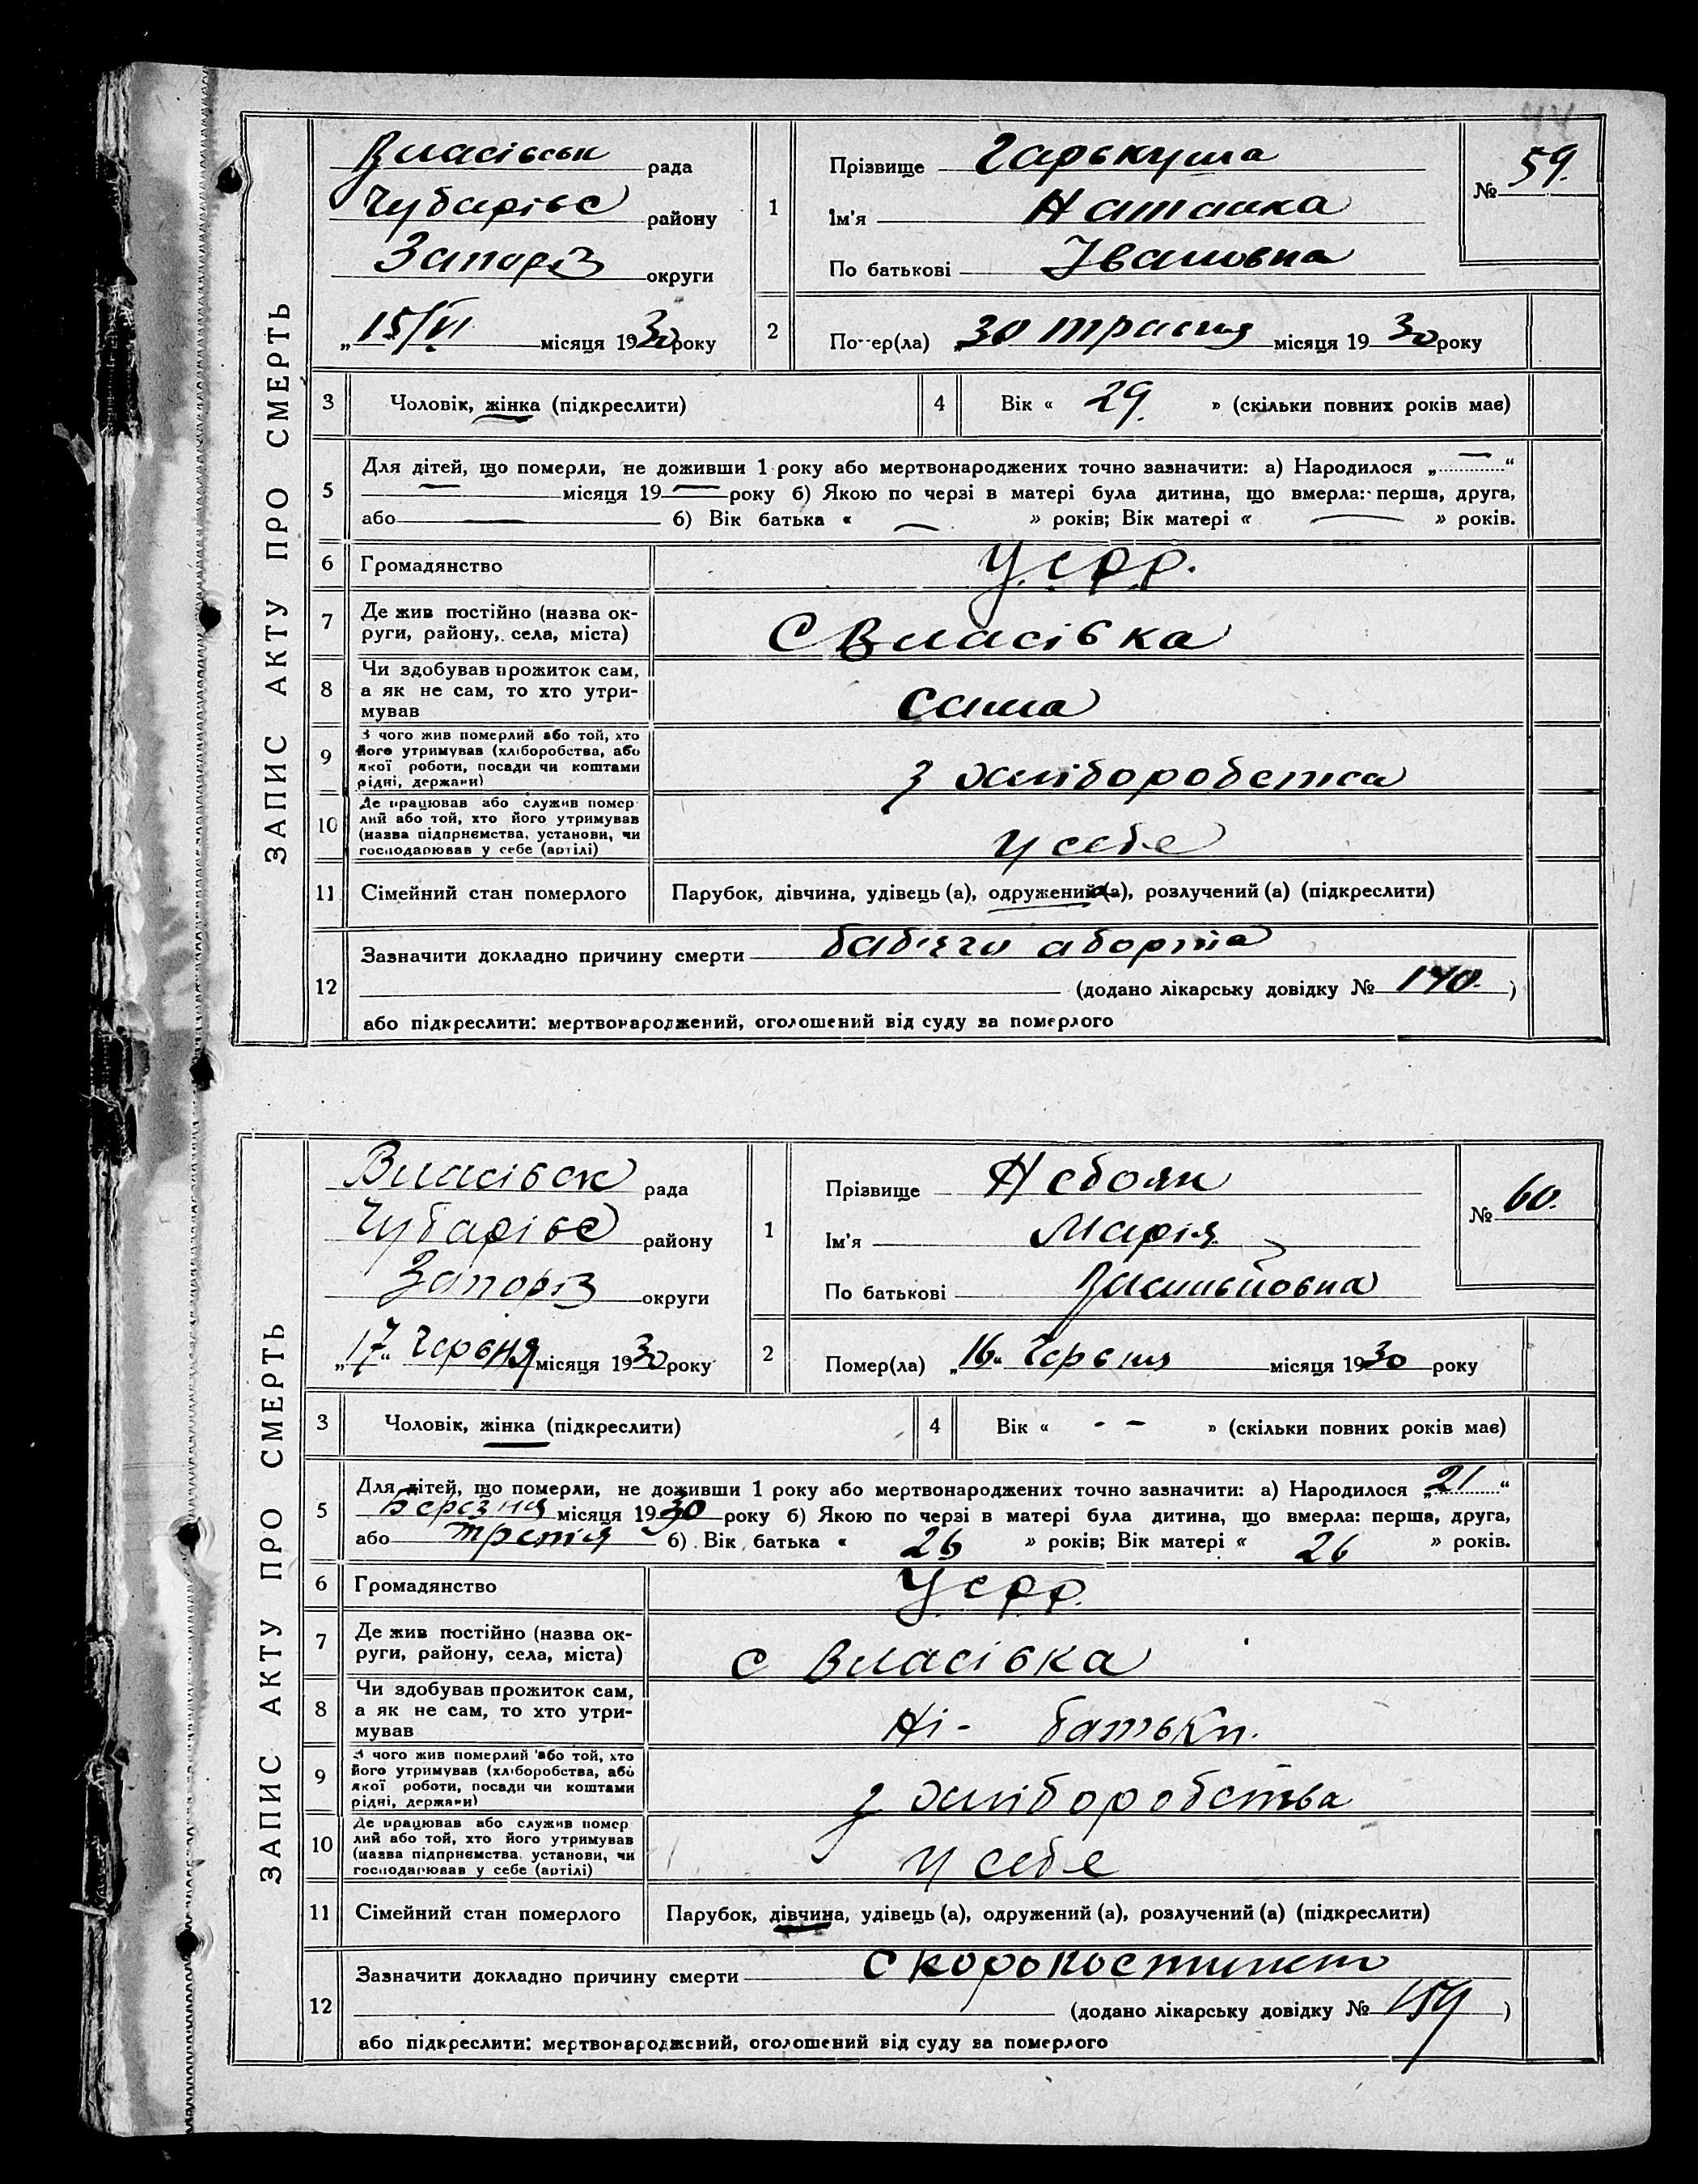 44
ЗАПИС АКТУ ПРО СМЕРТЬ
Власівськ рада
Чубарівс району
Запоріз округи
„15/VI місяця 1930 року
1
Прізвище Гарькуша
Ім'я Наталка
По батькові Івановна
№ 59.
2
Помер(ла) „30 травня місяця 1930 року
3 Чоловік, жінка (підкреслити)
4 Вік « 29. » (скільки повних років має)
5 Для дітей, що померли, не доживши 1 року або мертвонароджених точно зазначити: а) Народилося „ — “
— місяця 19 — року б) Якою по черзі в матері була дитина, що вмерла: перша, друга,
або — б) Вік батька « — » років; Вік матері « — » років.
6 Громадянство У.С.Р.Р.
7 Де жив постійно (назва ок-
руги, району, села, міста) С Власівка
8 Чи здобував прожиток сам,
а як не сам, то хто утри-
мував сама
9 З чого жив померлий або той, хто
його утримував (хліборобства, або
якої роботи, посади чи коштами
рідні, держави) з хліборобства
10 Де працював або служив помер
лий або той, хто його утримував
(назва підприємства, установи, чи
господарював у себе (артілі) у себе
11 Сімейний стан померлого Парубок, дівчина, удівець (а), одружений (а), розлучений (а) (підкреслити)
12 Зазначити докладно причину смерти баб'яго аборта
(додано лікарську довідку № 140. )
або підкреслити: мертвонароджений, оголошений від суду за померлого
ЗАПИС АКТУ ПРО СМЕРТЬ
Власівськ рада
Чубарівс району
Запоріз округи
„17“ Червня місяця 1930 року
1
Прізвище Небоян
Ім'я Марія
По батькові Васильовна
№ 60.
2
Помер(ла) „16“ Червня місяця 1930 року
3 Чоловік, жінка (підкреслити)
4 Вік « - - » (скільки повних років має)
5 Для дітей, що померли, не доживши 1 року або мертвонароджених точно зазначити: а) Народилося „21“
Березня місяця 1930 року б) Якою по черзі в матері була дитина, що вмерла: перша, друга,
або третія б) Вік батька « 26 » років; Вік матері « 26 » років.
6 Громадянство УСРР.
7 Де жив постійно (назва ок-
руги, району, села, міста) с Власівка
8 Чи здобував прожиток сам,
а як не сам, то хто утри-
мував Ні - батьки.
9 З чого жив померлий або той, хто
його утримував (хліборобства, або
якої роботи, посади чи коштами
рідні, держави) з хліборобства
10 Де працював або служив помер
лий або той, хто його утримував
(назва підприємства, установи, чи
господарював у себе (артілі) у себе
11 Сімейний стан померлого Парубок, дівчина, удівець (а), одружений (а), розлучений (а) (підкреслити)
12 Зазначити докладно причину смерти
(додано лікарську довідку № 154 )
або підкреслити: мертвонароджений, оголошений від суду за померлого